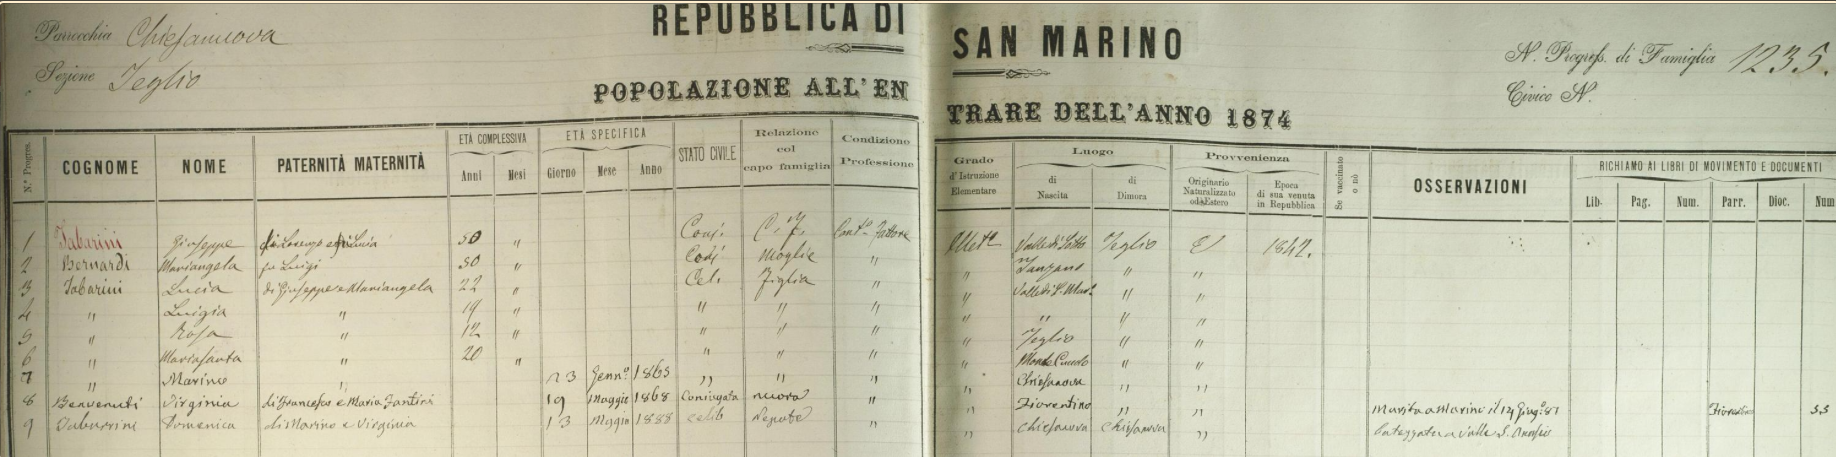 Parrocchia Chiesanuova
REPUBBLICA DI SAN MARINO
N. Progress. di Famiglia 1235.
Sezione Teglio
Civico N.
POPOLAZIONE ALL'ENTRARE DELL'ANNO 1874
N.° Progres. COGNOME NOME PATERNITÀ MATERNITÀ ETÀ COMPLESSIVA Anni Mesi ETÀ SPECIFICA Giorno Mese Anno STATO CIVILE Relazione col capo famiglia Condizione Professione Grado d'Istruzione Elementare Luogo di Nascita di Dimora Provvenienza Originario Naturalizzato od Estero Epoca di sua venuta in Repubblica Se vaccinato o nò OSSERVAZIONI RICHIAMO AI LIBRI DI MOVIMENTO E DOCUMENTI Lib. Pag. Num. Parr. Dioc. Num
1 Tabarini Giuseppe Lorenzo e Lucia 50 " Conj. C. F. Cont.e Fattore Illet.e Teglio E 1842.
2 Bernardi Mariangela fu Luigi 50 " Conj. Moglie " " " "
3 Tabarini Lucia di Giuseppe e Mariangela 22 " Cel. Figlia " " " "
4 " Luigia " 19 " " " " " " " "
5 " Rosa " 12 " " " " " Teglio " "
6 " Mariasanta " 20 " " " " " " "
7 " Marino " 23 Genn.o 1865 " " " " Chiesanuova " "
8 Benvenuti Virginia di Francesco e Maria Fantini 19 Maggio 1868 Coniugata nuora " " Fiorentino " " Marino il
9 Tabarrini Domenica di Marino e Virginia 13 Maggio 1888 celib Nepote " " Chiesanuova Chiesanuova "